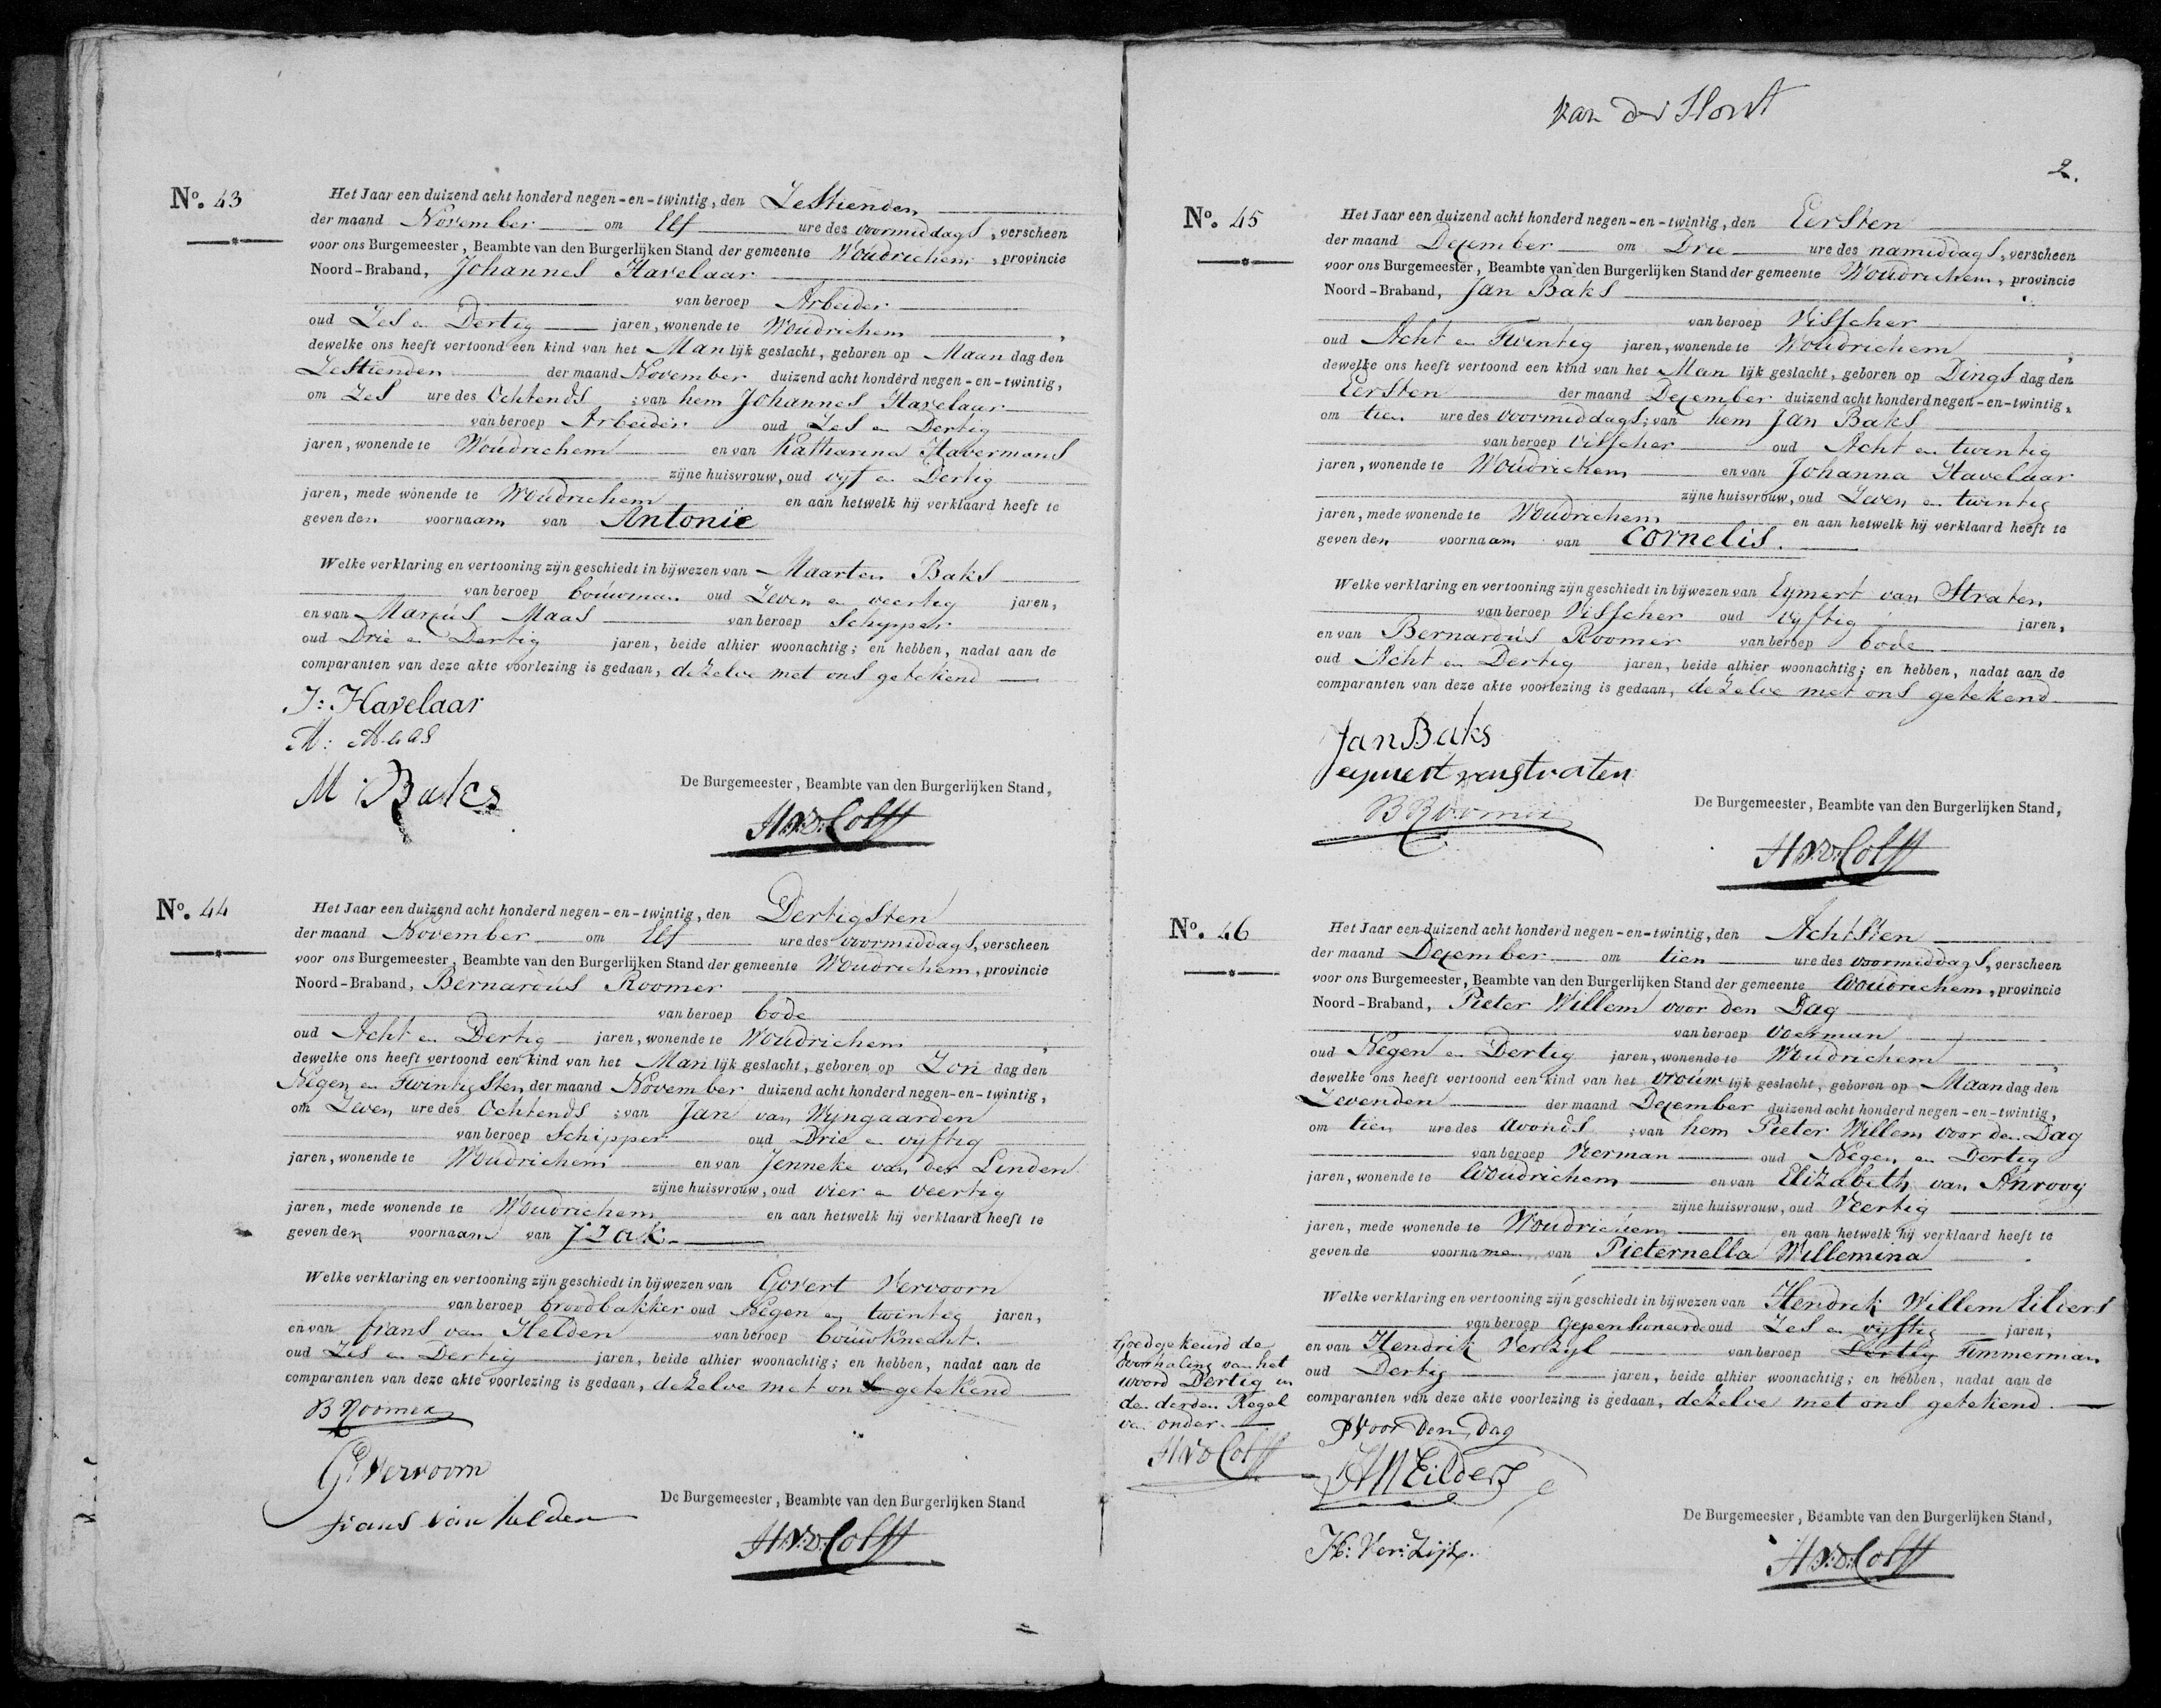 No. 43
Het Jaar een duizend acht honderd negen-en-twintig, den Zestienden
der maand November om Elf ure des voormiddags, verscheen
voor ons Burgemeester, Beambte van den Burgerlijken Stand der gemeente Woudrichem, provincie
Noord-Braband, Johannes Havelaar
van beroep Arbeider
oud Zes en Dertig jaren, wonende te Woudrichem,
dewelke ons heeft vertoond een kind van het Manlijk geslacht, geboren op Maandag den
Zestienden der maand November duizend acht honderd negen-en-twintig,
om Zes ure des Ochtends; van hem Johannes Havelaar
van beroep Arbeider oud Zes en Dertig
jaren, wonende te Woudrichem en van Katharina Havermans
zijne huisvrouw, oud vijf en Dertig
jaren, mede wonende te Woudrichem en aan hetwelk hij verklaard heeft te
geven den voornaam van Antonie
Welke verklaring en vertooning zijn geschiedt in bijwezen van Maarten Baks
van beroep bouwman oud Zeven en veertig jaren,
en van Marcus Maas van beroep Schipper
oud Drie en Dertig jaren, beide alhier woonachtig; en hebben, nadat aan de
comparanten van deze akte voorlezing is gedaan, dezelve met ons getekend
J: Havelaar
M: Maas
M: Baks
De Burgemeester, Beambte van den Burgerlijken Stand,
HVD Colff
No. 44
Het Jaar een duizend acht honderd negen-en-twintig, den Dertigsten
der maand November om Elf ure des voormiddags, verscheen
voor ons Burgemeester, Beambte van den Burgerlijken Stand der gemeente Woudrichem, provincie
Noord-Braband, Bernardus Roomer
van beroep bode
oud Acht en Dertig jaren, wonende te Woudrichem,
dewelke ons heeft vertoond een kind van het Manlijk geslacht, geboren op Zondag den
Negen en Twintigsten der maand November duizend acht honderd negen-en-twintig,
om Zeven ure des Ochtends; van Jan van Wyngaarden
van beroep Schipper oud Drie en vijftig
jaren, wonende te Woudrichem en van Jenneke van der Linden
zijne huisvrouw, oud vier en veertig
jaren, mede wonende te Woudrichem en aan hetwelk hij verklaard heeft te
geven den voornaam van Izak
Welke verklaring en vertooning zijn geschiedt in bijwezen van Govert Vervoorn
van beroep broodbakker oud Negen en twintig jaren,
en van frans van Helden van beroep bouwknecht
oud Zes en Dertig jaren, beide alhier woonachtig; en hebben, nadat aan de
comparanten van deze akte voorlezing is gedaan, dezelve met ons getekend
B Roomer
G: Vervoorn
frans van helden
De Burgemeester, Beambte van den Burgerlijken Stand
HVD Colff
van der Horst
2.
No. 45
Het Jaar een duizend acht honderd negen-en-twintig, den Eersten
der maand December om Drie ure des namiddags, verscheen
voor ons Burgemeester, Beambte van den Burgerlijken Stand der gemeente Woudrichem, provincie
Noord-Braband, Jan Baks
van beroep Visscher
oud Acht en Twintig jaren, wonende te Woudrichem,
dewelke ons heeft vertoond een kind van het Manlijk geslacht, geboren op Dingsdag den
Eersten der maand December duizend acht honderd negen-en-twintig,
om tien ure des voormiddags; van hem Jan Baks
van beroep visscher oud Acht en twintig
jaren, wonende te Woudrichem en van Johanna Havelaar
zijne huisvrouw, oud Zeven en twintig
jaren, mede wonende te Woudrichem en aan hetwelk hij verklaard heeft te
geven den voornaam van Cornelis.
Welke verklaring en vertooning zijn geschiedt in bijwezen van Eymert van Straten
van beroep Visscher oud vyftig jaren,
en van Bernardus Roomer van beroep bode
oud Acht en Dertig jaren, beide alhier woonachtig; en hebben, nadat aan de
comparanten van deze akte voorlezing is gedaan, dezelve met ons getekend
Jan Baks
eymert van straten
B Roomer
De Burgemeester, Beambte van den Burgerlijken Stand,
HVD Colff
No. 46
Het Jaar een duizend acht honderd negen-en-twintig, den Achtsten
der maand December om tien ure des voormiddags, verscheen
voor ons Burgemeester, Beambte van den Burgerlijken Stand der gemeente Woudrichem, provincie
Noord-Braband, Pieter Willem voor den Dag
van beroep Voerman
oud Negen en Dertig jaren, wonende te Woudrichem,
dewelke ons heeft vertoond een kind van het vrouwlijk geslacht, geboren op Maandag den
Zevenden der maand December duizend acht honderd negen-en-twintig,
om tien ure des avonds; van hem Pieter Willem voor den Dag
van beroep Voerman oud Negen en Dertig
jaren, wonende te Woudrichem en van Elizabeth van Anrooy
zijne huisvrouw, oud Veertig
jaren, mede wonende te Woudrichem en aan hetwelk hij verklaard heeft te
geven de voornamen van Pieternella Willemina
Welke verklaring en vertooning zijn geschiedt in bijwezen van Hendrik Willem Eilders
van beroep Gepensioneerde oud Zes en vijftig jaren,
en van Hendrik Verzyl van beroep Dertig Timmerman
oud Dertig jaren, beide alhier woonachtig; en hebben, nadat aan de
comparanten van deze akte voorlezing is gedaan, dezelve met ons getekend.
Goedgekeurd de
doorhaling van het
woord Dertig in
den derden Regel
van onder.
HVD Colff
P Voor Den Dag
HW Eilders
H: Ver:Zijl.
De Burgemeester, Beambte van den Burgerlijken Stand,
HVD Colff